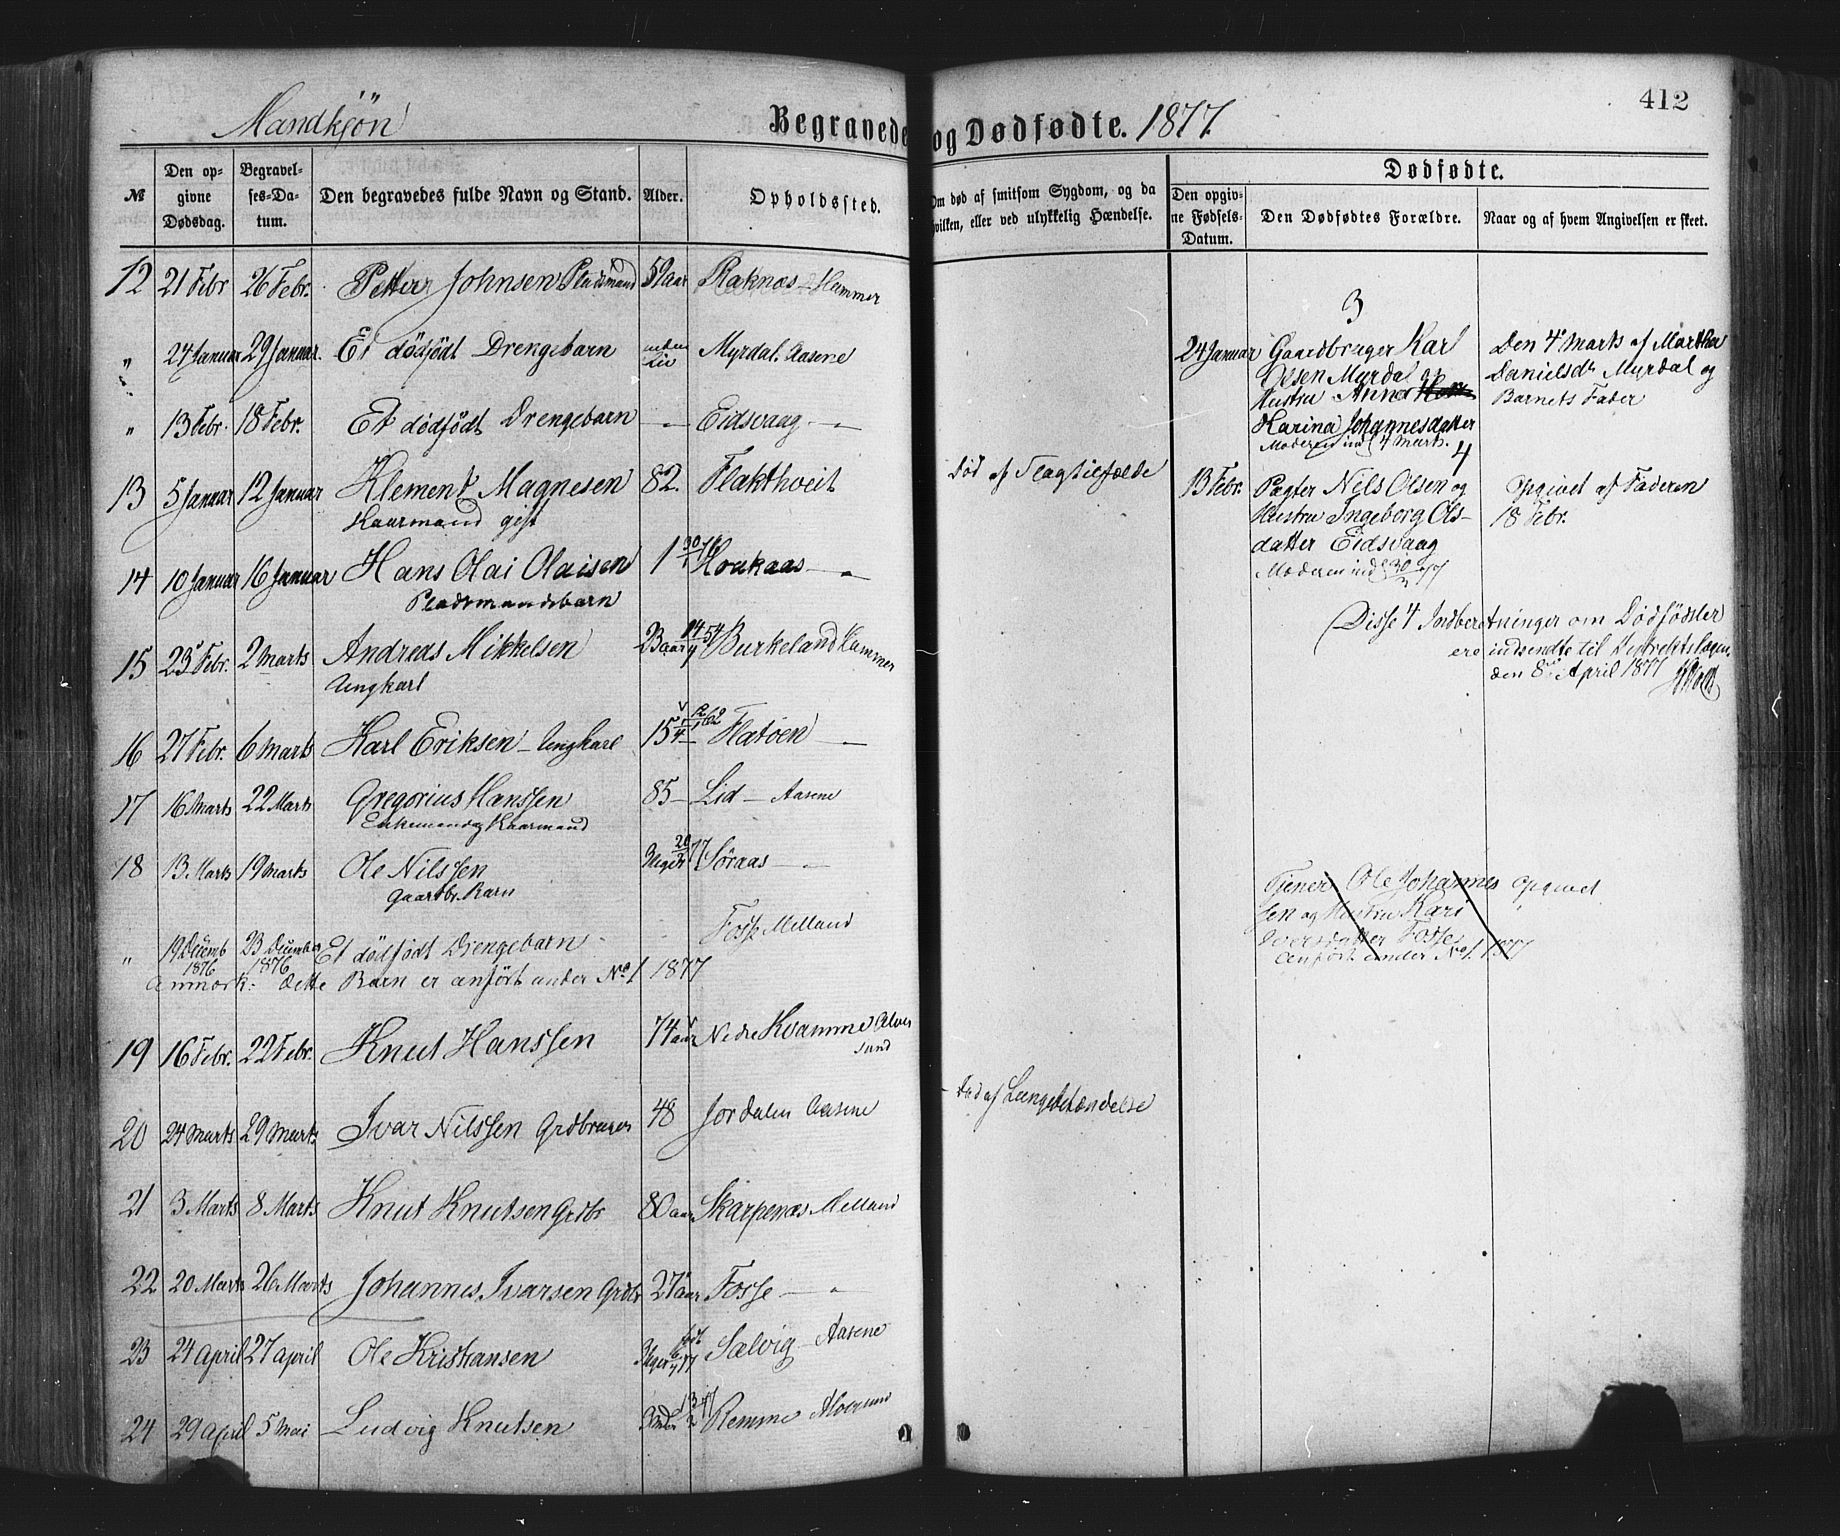 412
Mandkjön
Begravede og Dødfødte. 1877.
№
Den opgivne Dødsdag.
Begravelses-Datum.
Den begravedes fulde Navn og Stand.
Alder.
Opholdssted.
Om død af smitsom Sygdom, og da hvilken, eller ved ulykkelig Hændelse.
Dødfødte.
Den opgivne Fødsels-Datum.
Den Dødfødtes Forældre.
Naar og af hvem Angivelsen er skeet.
12 21 Febr 26 Febr. Petter Johnsen Pladsmand Raknæs - Hammer
3
" 24 Januar 29 Januar. Et dödfödt Drengebarn uden Liv Myrdal Aasene
24 Januar Gaardbruger Karl
Olsen Myrdal og
Hustru Anna
Karina Johannesdatter
Moderen ind 4 Marts.
Den 4de Marts af Martha
Danielsdtr Myrdal og
Barnets Fader
" 13 Febr. 18 Febr. Et dödfödt Drengebarn — Eidsvaag — "
4
13 5 Januar 12 Januar Klement Magnesen 82. Flakthveit
Kaarmand gift
Död af Slagtilfælde
13 Febr. Pagter Nils Olsen og
Hustru Ingeborg Ols-
datter Eidsvaag
Moderen ind 30/3 77
Opgivet af Faderen
18 Febr.
14 10 Januar 16 Januar Hans Olai Olaisen 1 Houkaas — "
Pladsmandsbarn
(Disse 4 Indberetninger om Dödfödsler
ere indsendte til Distriktslægen
den 8de April 1877
15 23 Febr. 2 Marts Andreas Mikkelsen 23 aar 14/4 54 Burkeland Hammer
Ungkarl
16 27 Febr. 6 Marts Karl Eriksen - Ungkarl 15 Flatöen —
17 16 Marts 22 Marts Gregorius Hanssen 85 — Lid — Aasene
Enkemand og Kaarmand
18 13 Marts 19 Marts Ole Nilssen 3 uger Söraas — "
Gaardbr. Barn
" 19 Decemb 1876 23 Decembr 1876 Et dödfödt Drengebarn — Fosse Melland
Anmærk: dette Barn er anfört under No 1 1877
Tjener Ole Johannes
sen og Hustru Kari
Iversdatter Fosse
Anfört under No 1. 1877
Opgivet
19 16 Febr. 22 Febr. Knut Hanssen 74 aar Nedre Kvamme Alver
sund
20 24 Marts 29 Marts Ivar Nilssen Grdbruger 48 Jordalen Aasene
Död af Lungebetændelse
21 3 Marts 8 Marts Knut Knutsen Grdbr 80 aar Skarpenæs Melland
22 20 Marts 26 Marts Johannes Ivarsen Grdbr 27 aar Fosse — "
23 24 April 27 April Ole Kristiansen 3 uger födt Sælvig - Aasene
24 29 April 5 Mai Ludvig Knutsen Remme Alversund